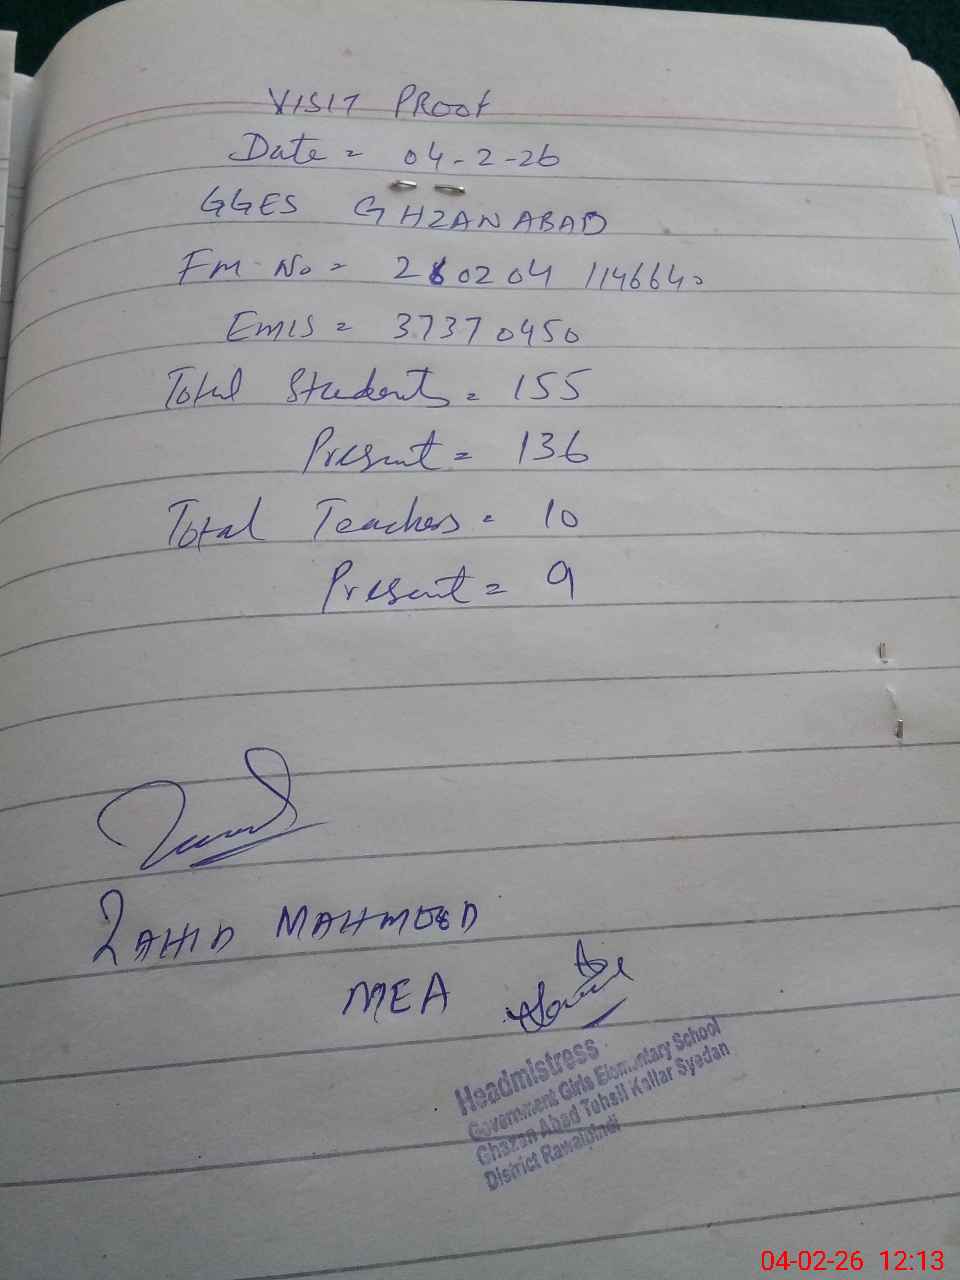 VISIT PROOF
Date = 04-2-26
GGES GHZANABAD
Fm No = 260204 1146640
Emis = 37370450
Total Students = 155
Present = 136
Total Teachers = 10
Present = 9
ZAHID MAHMOOD
MEA
Headmistress
Government Girls Elementary School
Ghazan Abad Tehsil Kallar Syedan
District Rawalpindi
04-02-26 12:13